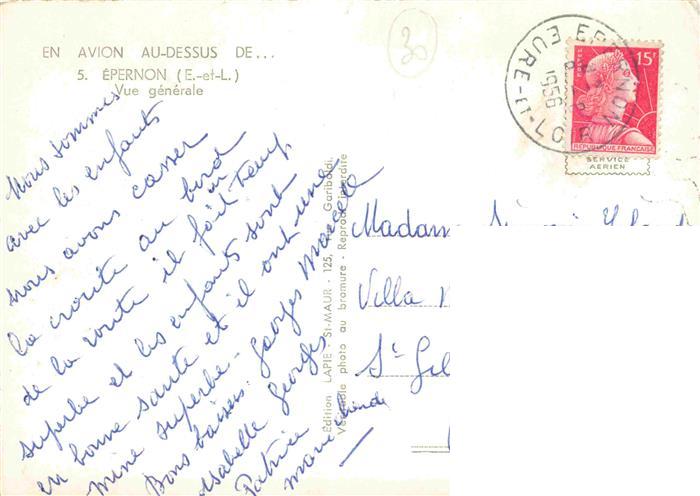 EN AVION AU-DESSUS DE...
5. ÉPERNON (E.-et-L.)
Vue générale
30
EPERNON
1956
EURE-ET-LOIR
15F
POSTES
REPUBLIQUE FRANÇAISE
SERVICE
AERIEN
Nous sommes
avec les enfants
nous avons casser
la croute au bord
de la route il fait un temps
superbe et les enfants sont
en bonne sante et il ont une
mine superbe -
Bons baisers. Georges Marcelle
Isabelle Georges
Patrice
Marie
Édition LAPIE - St-MAUR - 125, Garibaldi,
Véritable photo au bromure - Reprod. interdite
Madam
Villa
St Gil